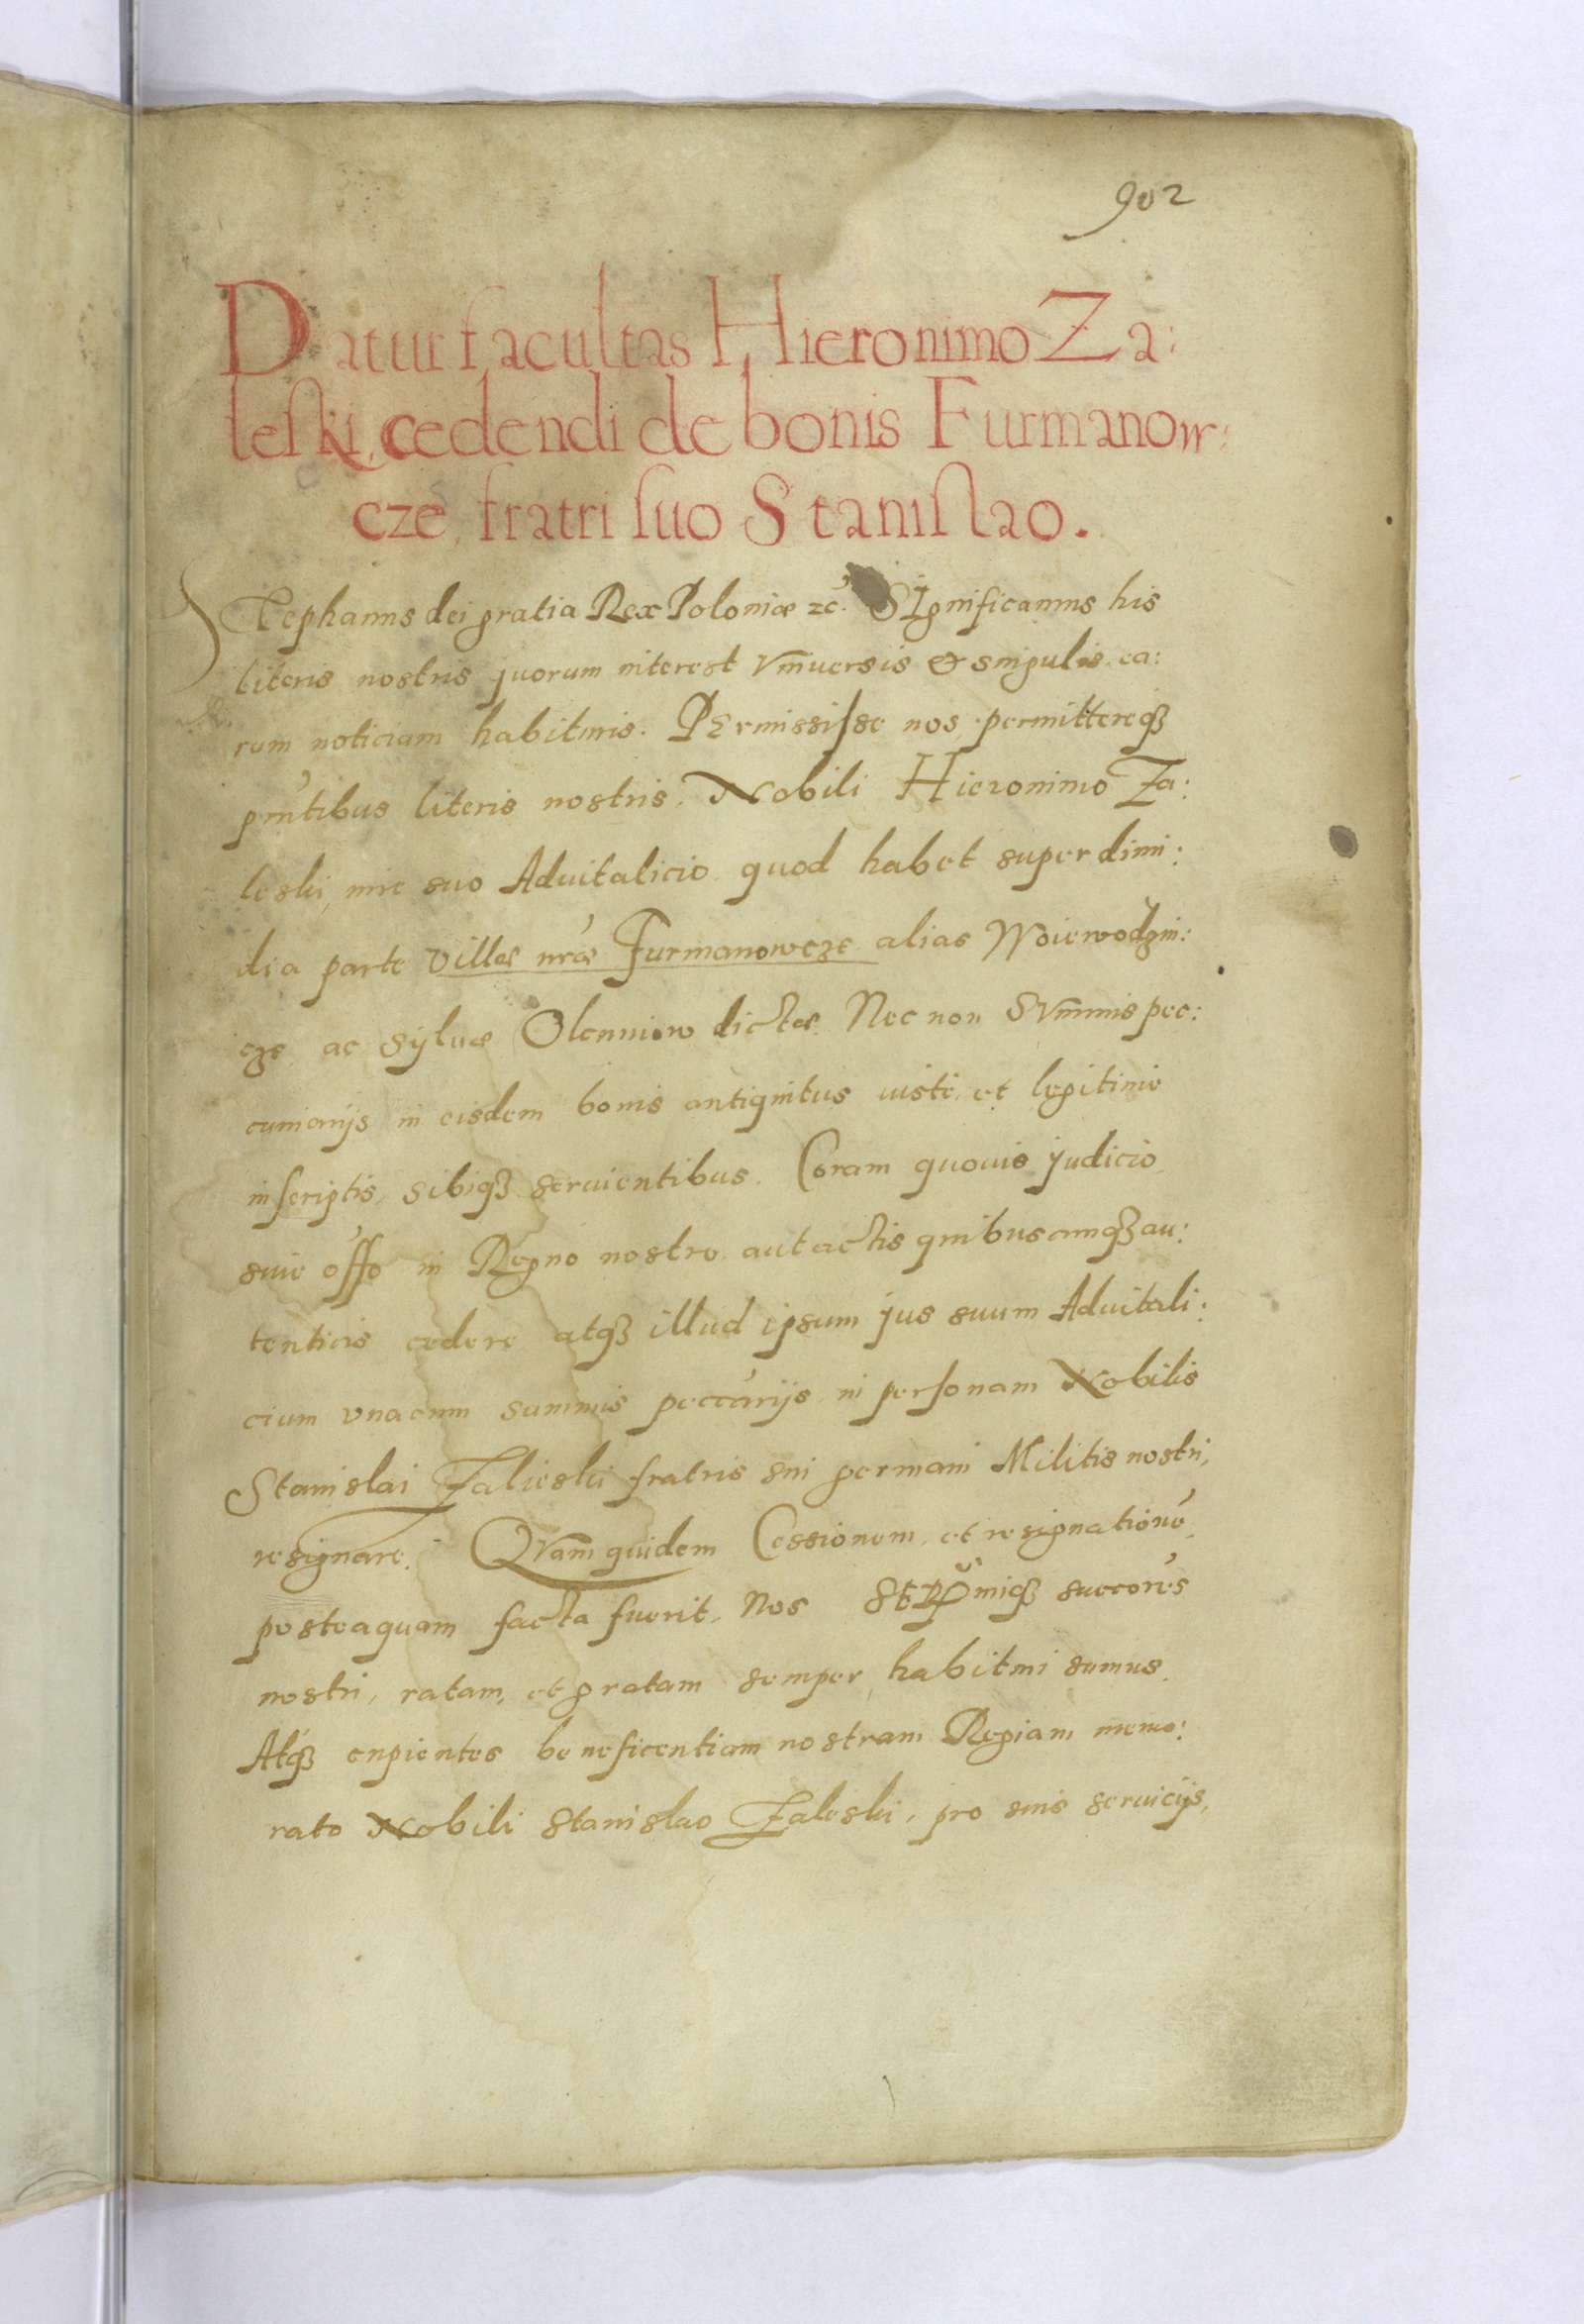 902
Datur facultas Hieronimo Za:
leski, cedendi de bonis Furmanow:
cze, fratri suo Stanislao.
Stephanus dei gratia Rex Poloniæ zc̄. SIgnificamus his
literis nostris quorum interest Vniuersis & singulis ea:
rum noticiam habituris. PErmississe nos permittereq3
pn̄tibus literis nostris. Nobili Hieronimo Za:
leski, iure suo Aduitalicio quod habet super dimi:
dia parte villæ nr̄æ Furmanowcze alias Woiewodzin:
cze ac syluæ Olenniow dictæ. Nec non SVmmis pec:
cuniarijs in eisdem bonis antiquitus iuste et legitime
inscriptis, sibiq3 seruientibus. Coram quouis judicio
siue offo in Regno nostro aut actis quibuscumq3 au:
tenticis cedere atq3 illud ipsum jus suum Aduitali:
cium vnacum summis peccārijs in personam Nobilis
Stanislai Zalieski fratris sui germani Militis nostri,
resignare. QVam quidem Cessionem et resignationē
posteaquam facta fuerit, Nos SERmiq3 succōres
nostri, ratam, et gratam semper habituri sumus.
Atq3 cupientes beneficentiam nostram Regiam memo:
rato Nobili Stanislao Zaleski, pro suis seruicijs,